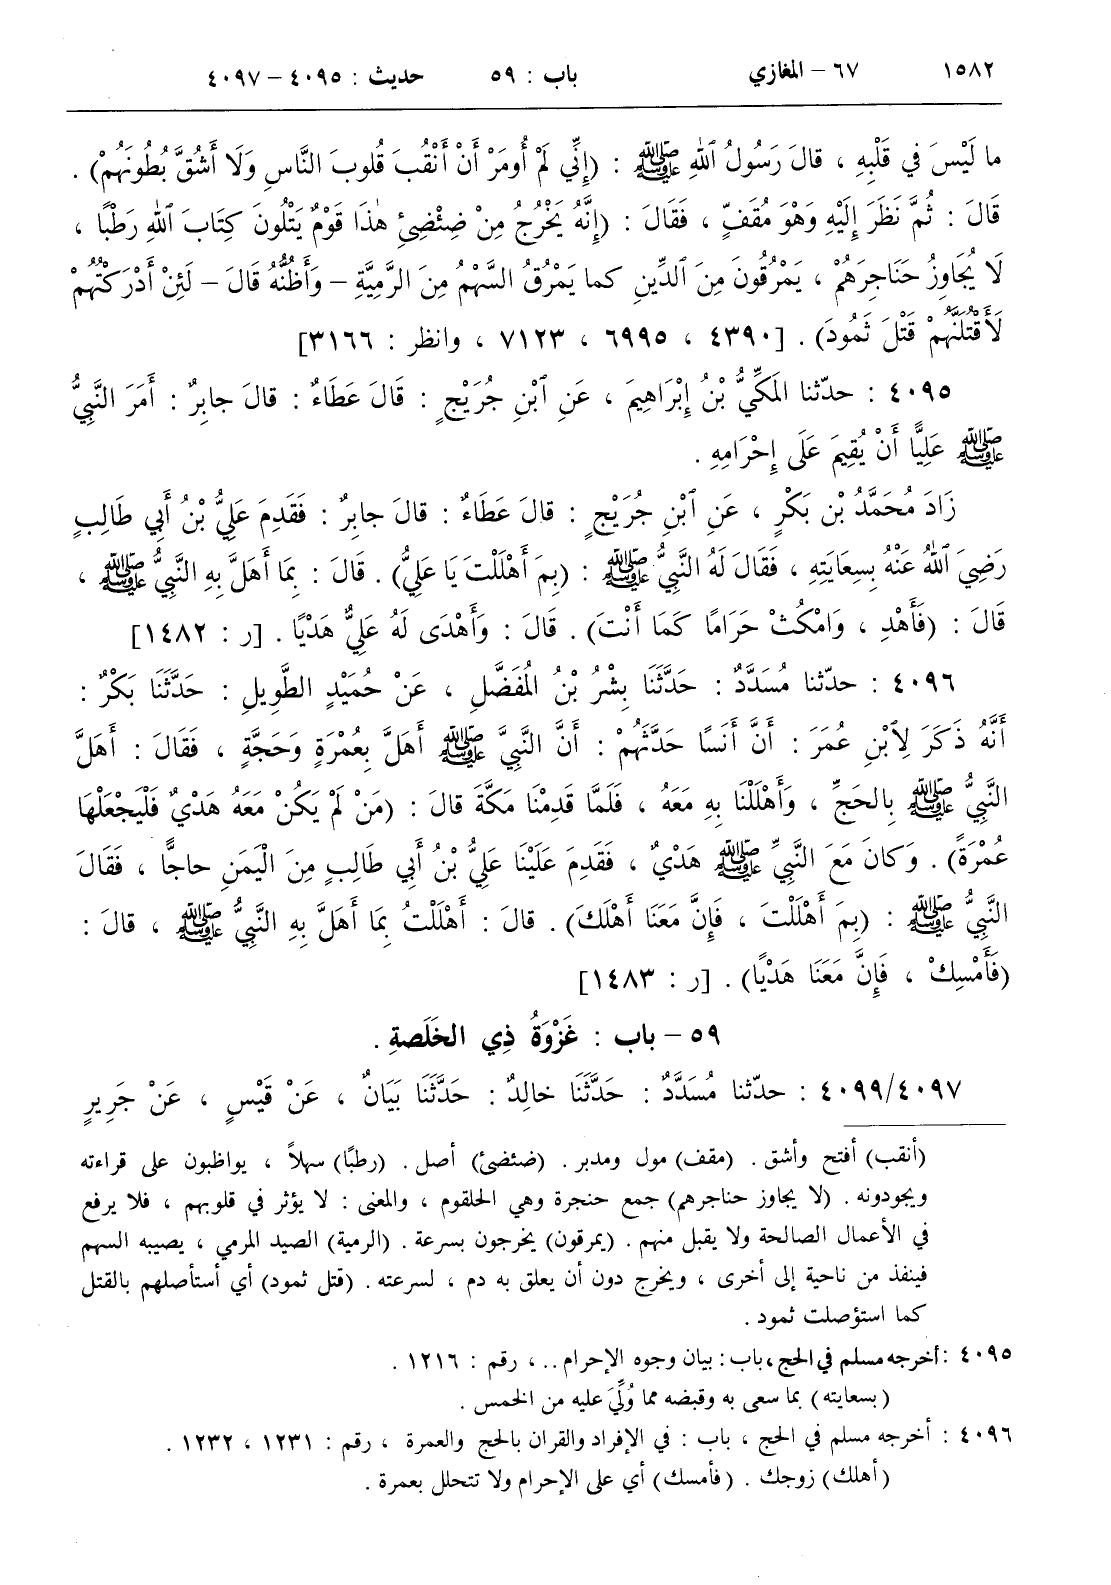 ١٥٨٢ ٦٧ - المغازي باب : ٥٩ حديث : ٤٠٩٥ - ٤٠٩٧
ما لَيْسَ في قَلْبِهِ ، قالَ رَسُولُ ٱللهِ ﷺ : (إِنِّي لَمْ أُومَرْ أَنْ أَنْقُبَ قُلوبَ النَّاسِ وَلَا أَشُقَّ بُطُونَهُمْ) .
قَالَ : ثُمَّ نَظَرَ إِلَيْهِ وَهْوَ مُقَفٍّ ، فَقَالَ : (إِنَّهُ يَخْرُجُ مِنْ ضِئْضِئِ هٰذَا قَوْمٌ يَتْلُونَ كِتَابَ ٱللهِ رَطْبًا ،
لَا يُجَاوِزُ حَنَاجِرَهُمْ ، يَمْرُقُونَ مِنَ ٱلدِّينِ كما يَمْرُقُ السَّهْمُ مِنَ الرَّمِيَّةِ – وَأَظُنُّهُ قالَ – لَئِنْ أَدْرَكْتُهُمْ
لَأَقْتُلَنَّهُمْ قَتْلَ ثَمُودَ) . [٤٣٩٠ ، ٦٩٩٥ ، ٧١٢٣ ، وانظر : ٣١٦٦]
٤٠٩٥ : حدّثنا المَكِّيُّ بْنُ إِبْرَاهِيمَ ، عَنِ ٱبْنِ جُرَيْجٍ : قَالَ عَطَاءٌ : قالَ جابِرٌ : أَمَرَ النَّبِيُّ
ﷺ عَلِيًّا أَنْ يُقِيمَ عَلَى إِحْرَامِهِ .
زَادَ مُحَمَّدُ بْن بَكْرٍ ، عَنِ ٱبْنِ جُرَيْجٍ : قالَ عَطَاءٌ : قالَ جابِرٌ : فَقَدِمَ عَلِيُّ بْنُ أَبِي طَالِبٍ
رَضِيَ ٱللهُ عَنْهُ بِسِعَايَتِهِ ، فَقَالَ لَهُ النَّبِيُّ ﷺ : (بِمَ أَهْلَلْتَ يَا عَلِيُّ) . قَالَ : بِمَا أَهَلَّ بِهِ النَّبِيُّ ﷺ ،
قَالَ : (فَأَهْدِ ، وَامْكُثْ حَرَامًا كَمَا أَنْتَ) . قَالَ : وَأَهْدَى لَهُ عَلِيٌّ هَدْيًا . [ر : ١٤٨٢]
٤٠٩٦ : حدّثنا مُسَدَّدٌ : حَدَّثَنَا بِشْرُ بْنُ الْمُفَضَّلِ ، عَنْ حُمَيْدٍ الطَّوِيلِ : حَدَّثَنَا بَكْرٌ :
أَنَّهُ ذَكَرَ لِٱبْنِ عُمَرَ : أَنَّ أَنَسًا حَدَّثَهُمْ : أَنَّ النَّبِيَّ ﷺ أَهَلَّ بِعُمْرَةٍ وَحَجَّةٍ ، فَقَالَ : أَهَلَّ
النَّبِيُّ ﷺ بِالحَجِّ ، وَأَهْلَلْنَا بِهِ مَعَهُ ، فَلَمَّا قَدِمْنَا مَكَّةَ قالَ : (مَنْ لَمْ يَكُنْ مَعَهُ هَدْيٌ فَلْيَجْعَلْهَا
عُمْرَةً) . وَكانَ مَعَ النَّبِيِّ ﷺ هَدْيٌ ، فَقَدِمَ عَلَيْنَا عَلِيُّ بْنُ أَبِي طَالِبٍ مِنَ الْيَمَنِ حاجًّا ، فَقَالَ
النَّبِيُّ ﷺ : (بِمَ أَهْلَلْتَ ، فَإِنَّ مَعَنَا أَهْلَكَ) . قالَ : أَهْلَلْتُ بِمَا أَهَلَّ بِهِ النَّبِيُّ ﷺ ، قالَ :
(فَأَمْسِكْ ، فَإِنَّ مَعَنَا هَدْيًا) . [ر : ١٤٨٣]
٥٩ – باب : غَزْوَةُ ذِي الخَلَصةِ .
٤٠٩٩/٤٠٩٧ : حدّثنا مُسَدَّدٌ : حَدَّثَنَا خالِدٌ : حَدَّثَنَا بَيَانٌ ، عَنْ قَيْسٍ ، عَنْ جَرِيرٍ
(أنقب) أفتح وأشق . (مقف) مول ومدبر . (ضئضئ) أصل . (رطبًا) سهلاً ، يواظبون على قراءته
ويجودونه . (لا يجاوز حناجرهم) جمع حنجرة وهي الحلقوم ، والمعنى : لا يؤثر في قلوبهم ، فلا يرفع
في الأعمال الصالحة ولا يقبل منهم . (يمرقون) يخرجون بسرعة . (الرمية) الصيد المرمي ، يصيبه السهم
فينفذ من ناحية إلى أخرى ، ويخرج دون أن يعلق به دم ، لسرعته . (قتل ثمود) أي أستأصلهم بالقتل
كما استؤصلت ثمود .
٤٠٩٥ : أخرجه مسلم في الحج ، باب : بيان وجوه الإحرام .. ، رقم : ١٢١٦ .
(بسعايته) بما سعى به وقبضه مما وُلِّيَ عليه من الخمس .
٤٠٩٦ : أخرجه مسلم في الحج ، باب : في الإفراد والقران بالحج والعمرة ، رقم : ١٢٣١ ، ١٢٣٢ .
(أهلك) زوجك . (فأمسك) أي على الإحرام ولا تتحلل بعمرة .